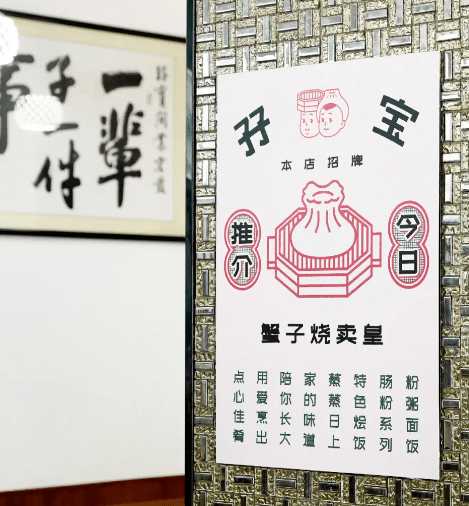 一輩
子一件
事
孖宝
本店招牌
今日
推介
蟹子烧卖皇
粉粥面饭
肠粉系列
特色烩饭
蒸蒸日上
家的味道
陪你长大
用爱烹出
点心佳肴